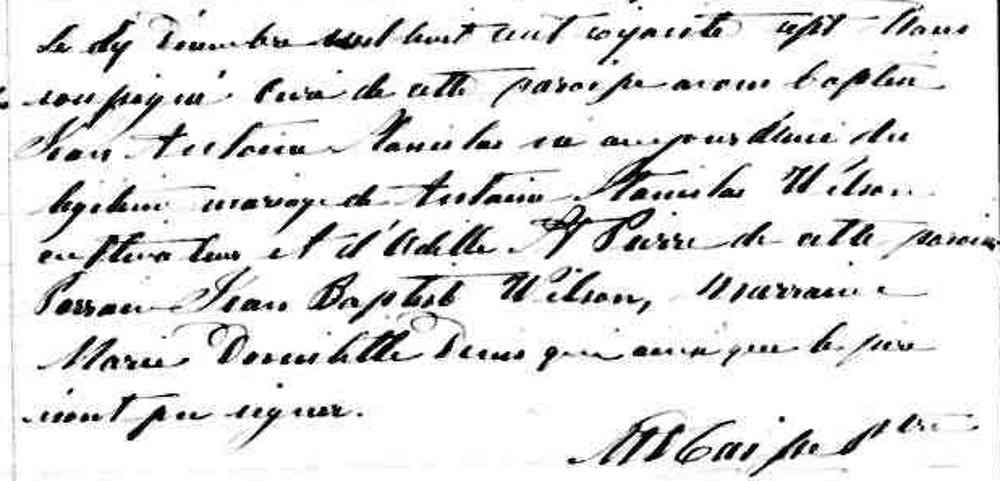 Le dix Décembre mil huit cent soixante sept Nous
soussigné Curé de cette paroisse avons baptisé
Jean Antoine Stanislas né aujourd'hui du
légitime mariage de Antoine Stanislas Wilson
cultivateur et d'Adille St Pierre de cette paroisse
Parrain Jean Baptiste Wilson, Marraine
Marie Domitille Denis qui ainsi que le père
n'ont pu signer.
Ptre